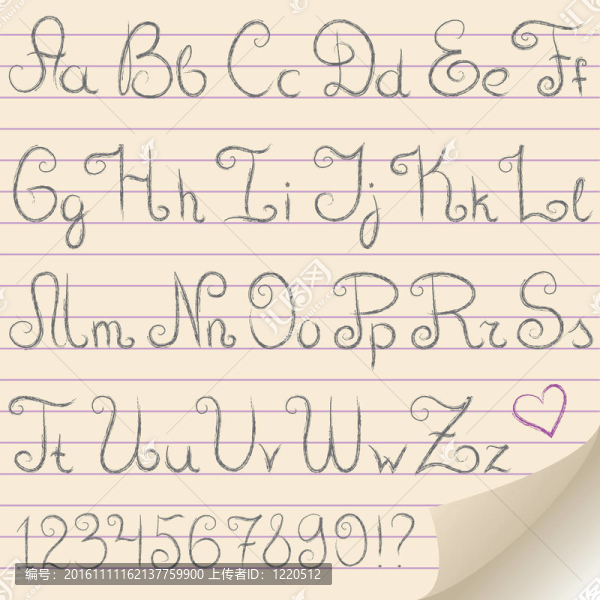 Aa Bb Cc Dd Ee Ff
Gg Hh Ii Jj Kk Ll
Mm Nn Oo Pp Rr Ss
Tt Uu Vv Ww Zz
1234567890!?
编号：20161111162137759900 上传者ID：1220512